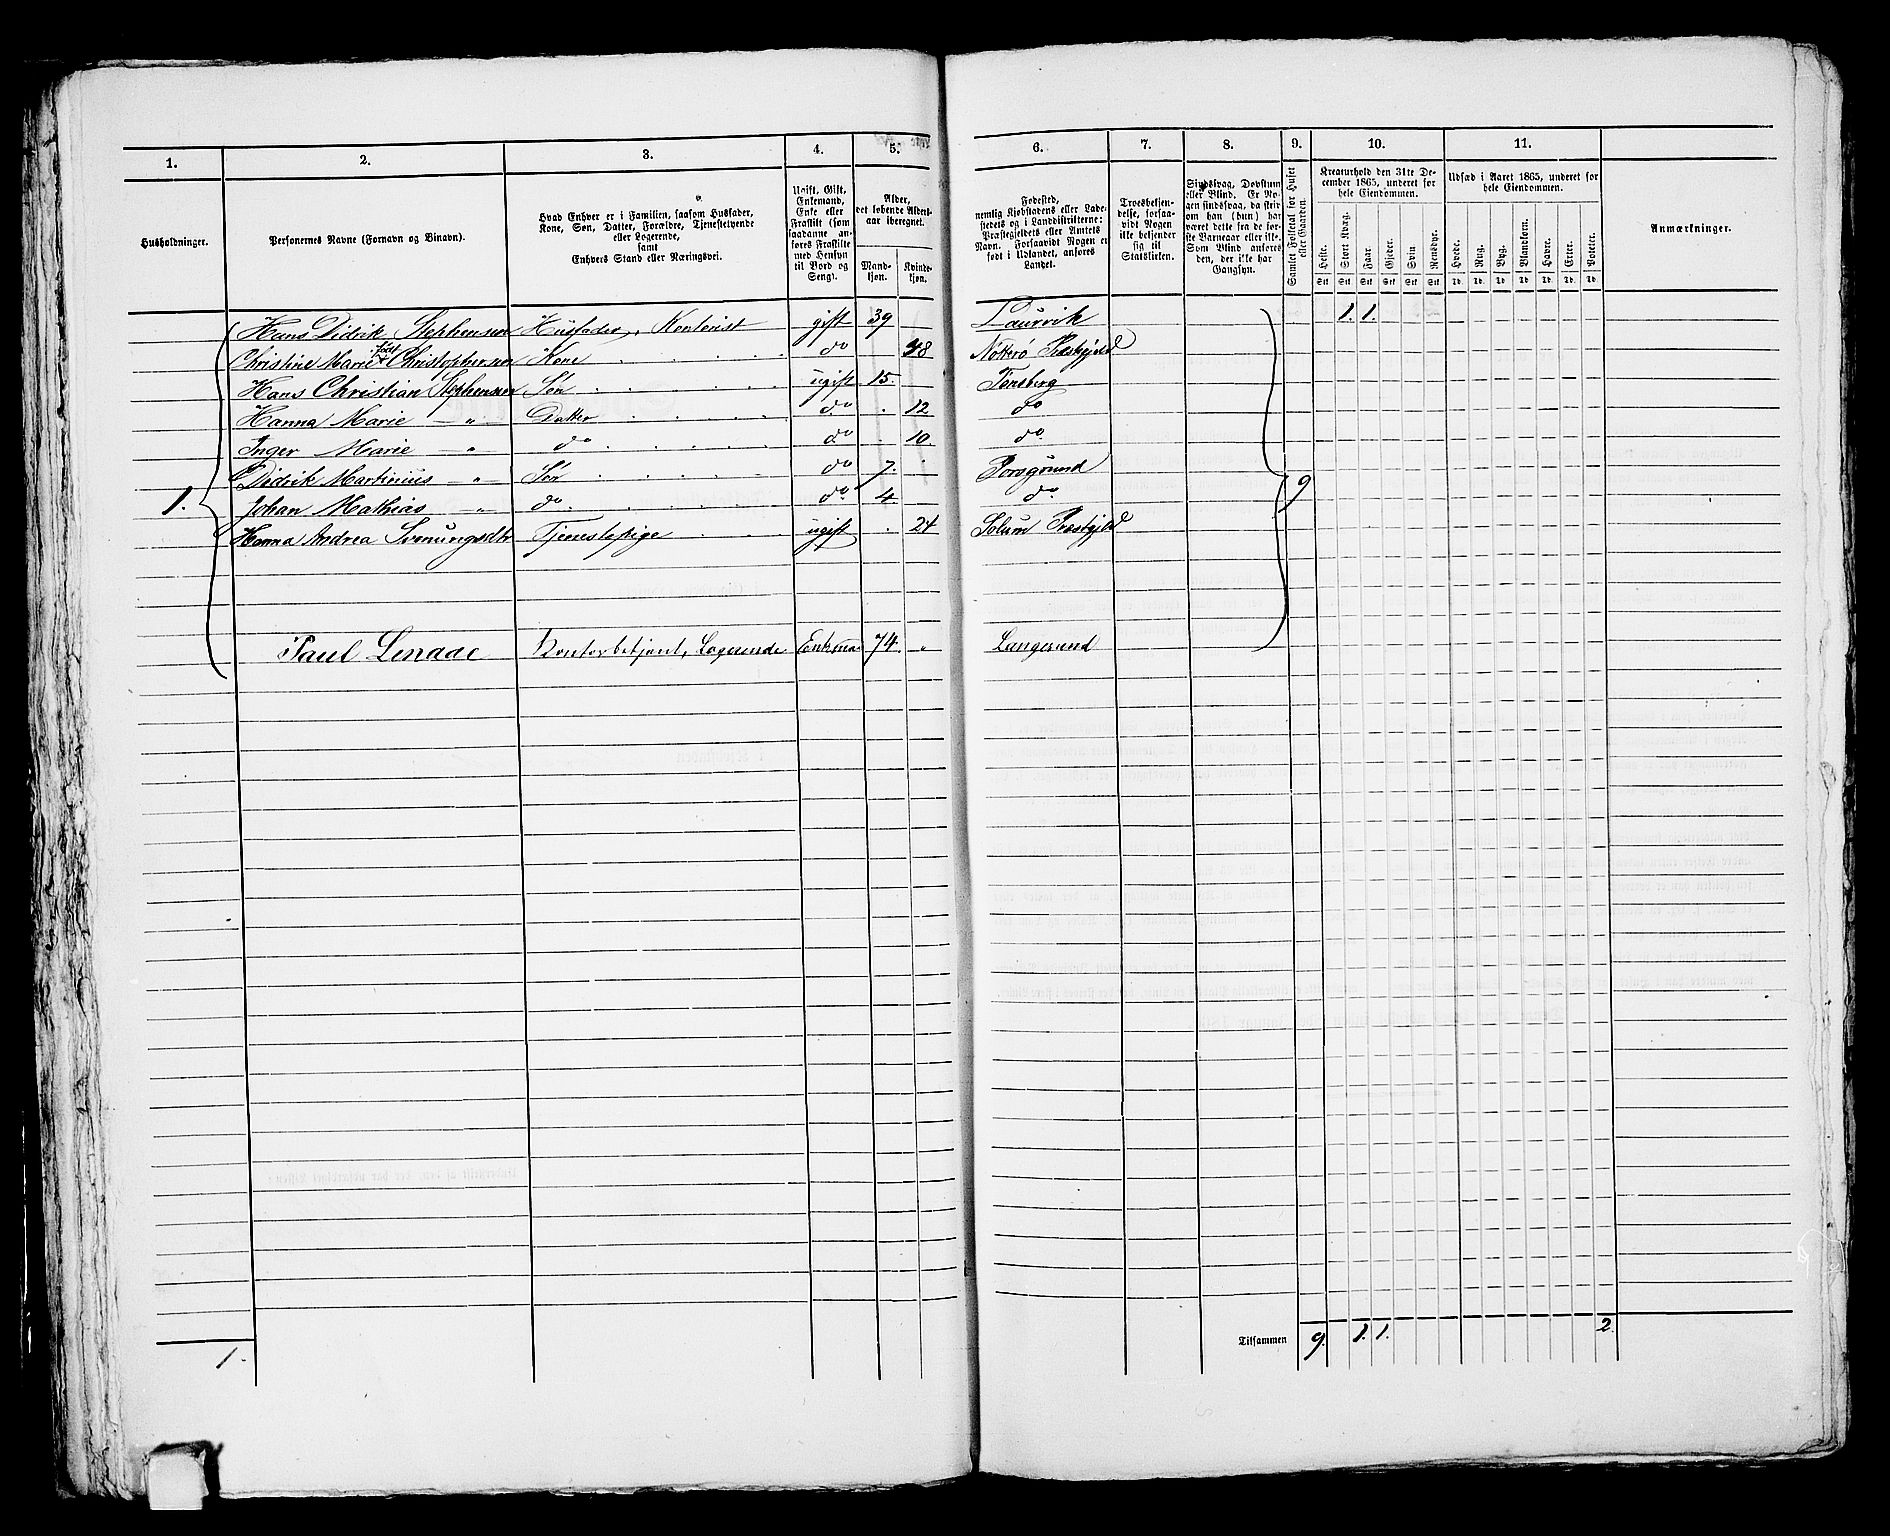 1. 2. 3. 4. 5. 6. 7. 8. 9. 10. 11.
Husholdninger.
Personernes Navne (Fornavn og Binavn).
Hvad Enhver er i Familien, saasom Husfader,
Kone, Søn, Datter, Forældre, Tjenestetyende
eller Logerende,
samt
Enhvers Stand eller Næringsvei.
Ugift, Gift,
Enkemand,
Enke eller
Fraskilt (som
saadanne an-
føres Fraskilte
med Hensyn
til Bord og
Seng).
Alder,
det løbende Alders-
aar iberegnet.
Mand-
kjøn.
Kvinde-
kjøn.
Fødested,
nemlig Kjøbstadens eller Lade-
stedets og i Landdistrikterne:
Præstegjeldets eller Amtets
Navn. Forsaavidt Nogen er
født i Udlandet, anføres
Landet.
Troesbekjen-
delse, forsaa-
vidt Nogen
ikke bekjender
sig til
Statskirken.
Sindssvag, Døvstum
eller Blind. Er No-
gen sindssvag, da skriv
om han (hun) har
været dette fra de før-
ste Barneaar eller ikke.
Som Blind anføres
den, der ikke har
Gangsyn.
Samlet Folketal for Huset
eller Gaarden.
Kreaturhold den 31te De-
cember 1865, underet for
hele Eiendommen.
Heste. Stort Kvæg. Faar. Gjeder. Svin Rensdyr.
Stk Stk Stk Stk Stk Stk
Udsæd i Aaret 1865, underet for
hele Eiendommen.
Hvede. Rug. Byg. Blandkorn. Havre. Erter. Poteter.
Td. Td. Td. Td. Td. Td. Td.
Anmærkninger.
Hans Didrik Stephensen Husfader, Kontorist gift 39 Laurvik 1. 1.
Christine Marie født Christophersen Kone do 38 Nøtterø Præstgjeld
Hans Christian Stephensen Søn ugift 15. Tønsberg
Hanna Marie — " — Datter do . 12 do
Inger Marie — " — do do . 10. do.
Didrik Martinius — " — Søn do 7. Porsgrund
1. Johan Mathias — " — do do. 4. do. 9
Hanna Andrea Svenungsdtr Tjenestepige ugift . 24 Solum Præstgjeld
Paul Lenaae Kontorbetjent, Logerende Enkema 74. " Langesund
Tilsammen 9. 1. 1. 2.
1.